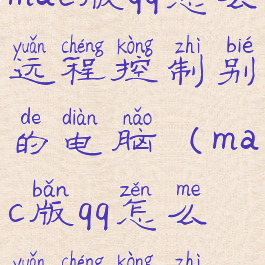 mac版qq怎么
yuǎn chéng kòng zhì bié
远程控制别
de diàn nǎo
的电脑（ma
bǎn zěn me
c版qq怎么
yuǎn chéng kòng zhì